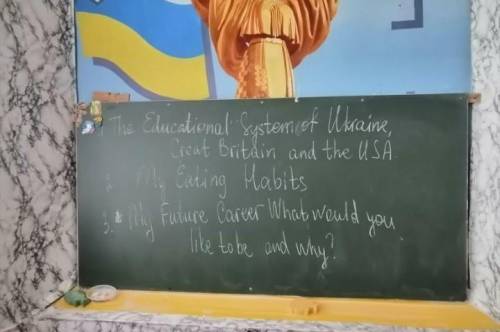 The Educational System of Ukraine,
Great Britain and the USA
2. My Eating Habits
3. My Future Career What would you
like to be and why?